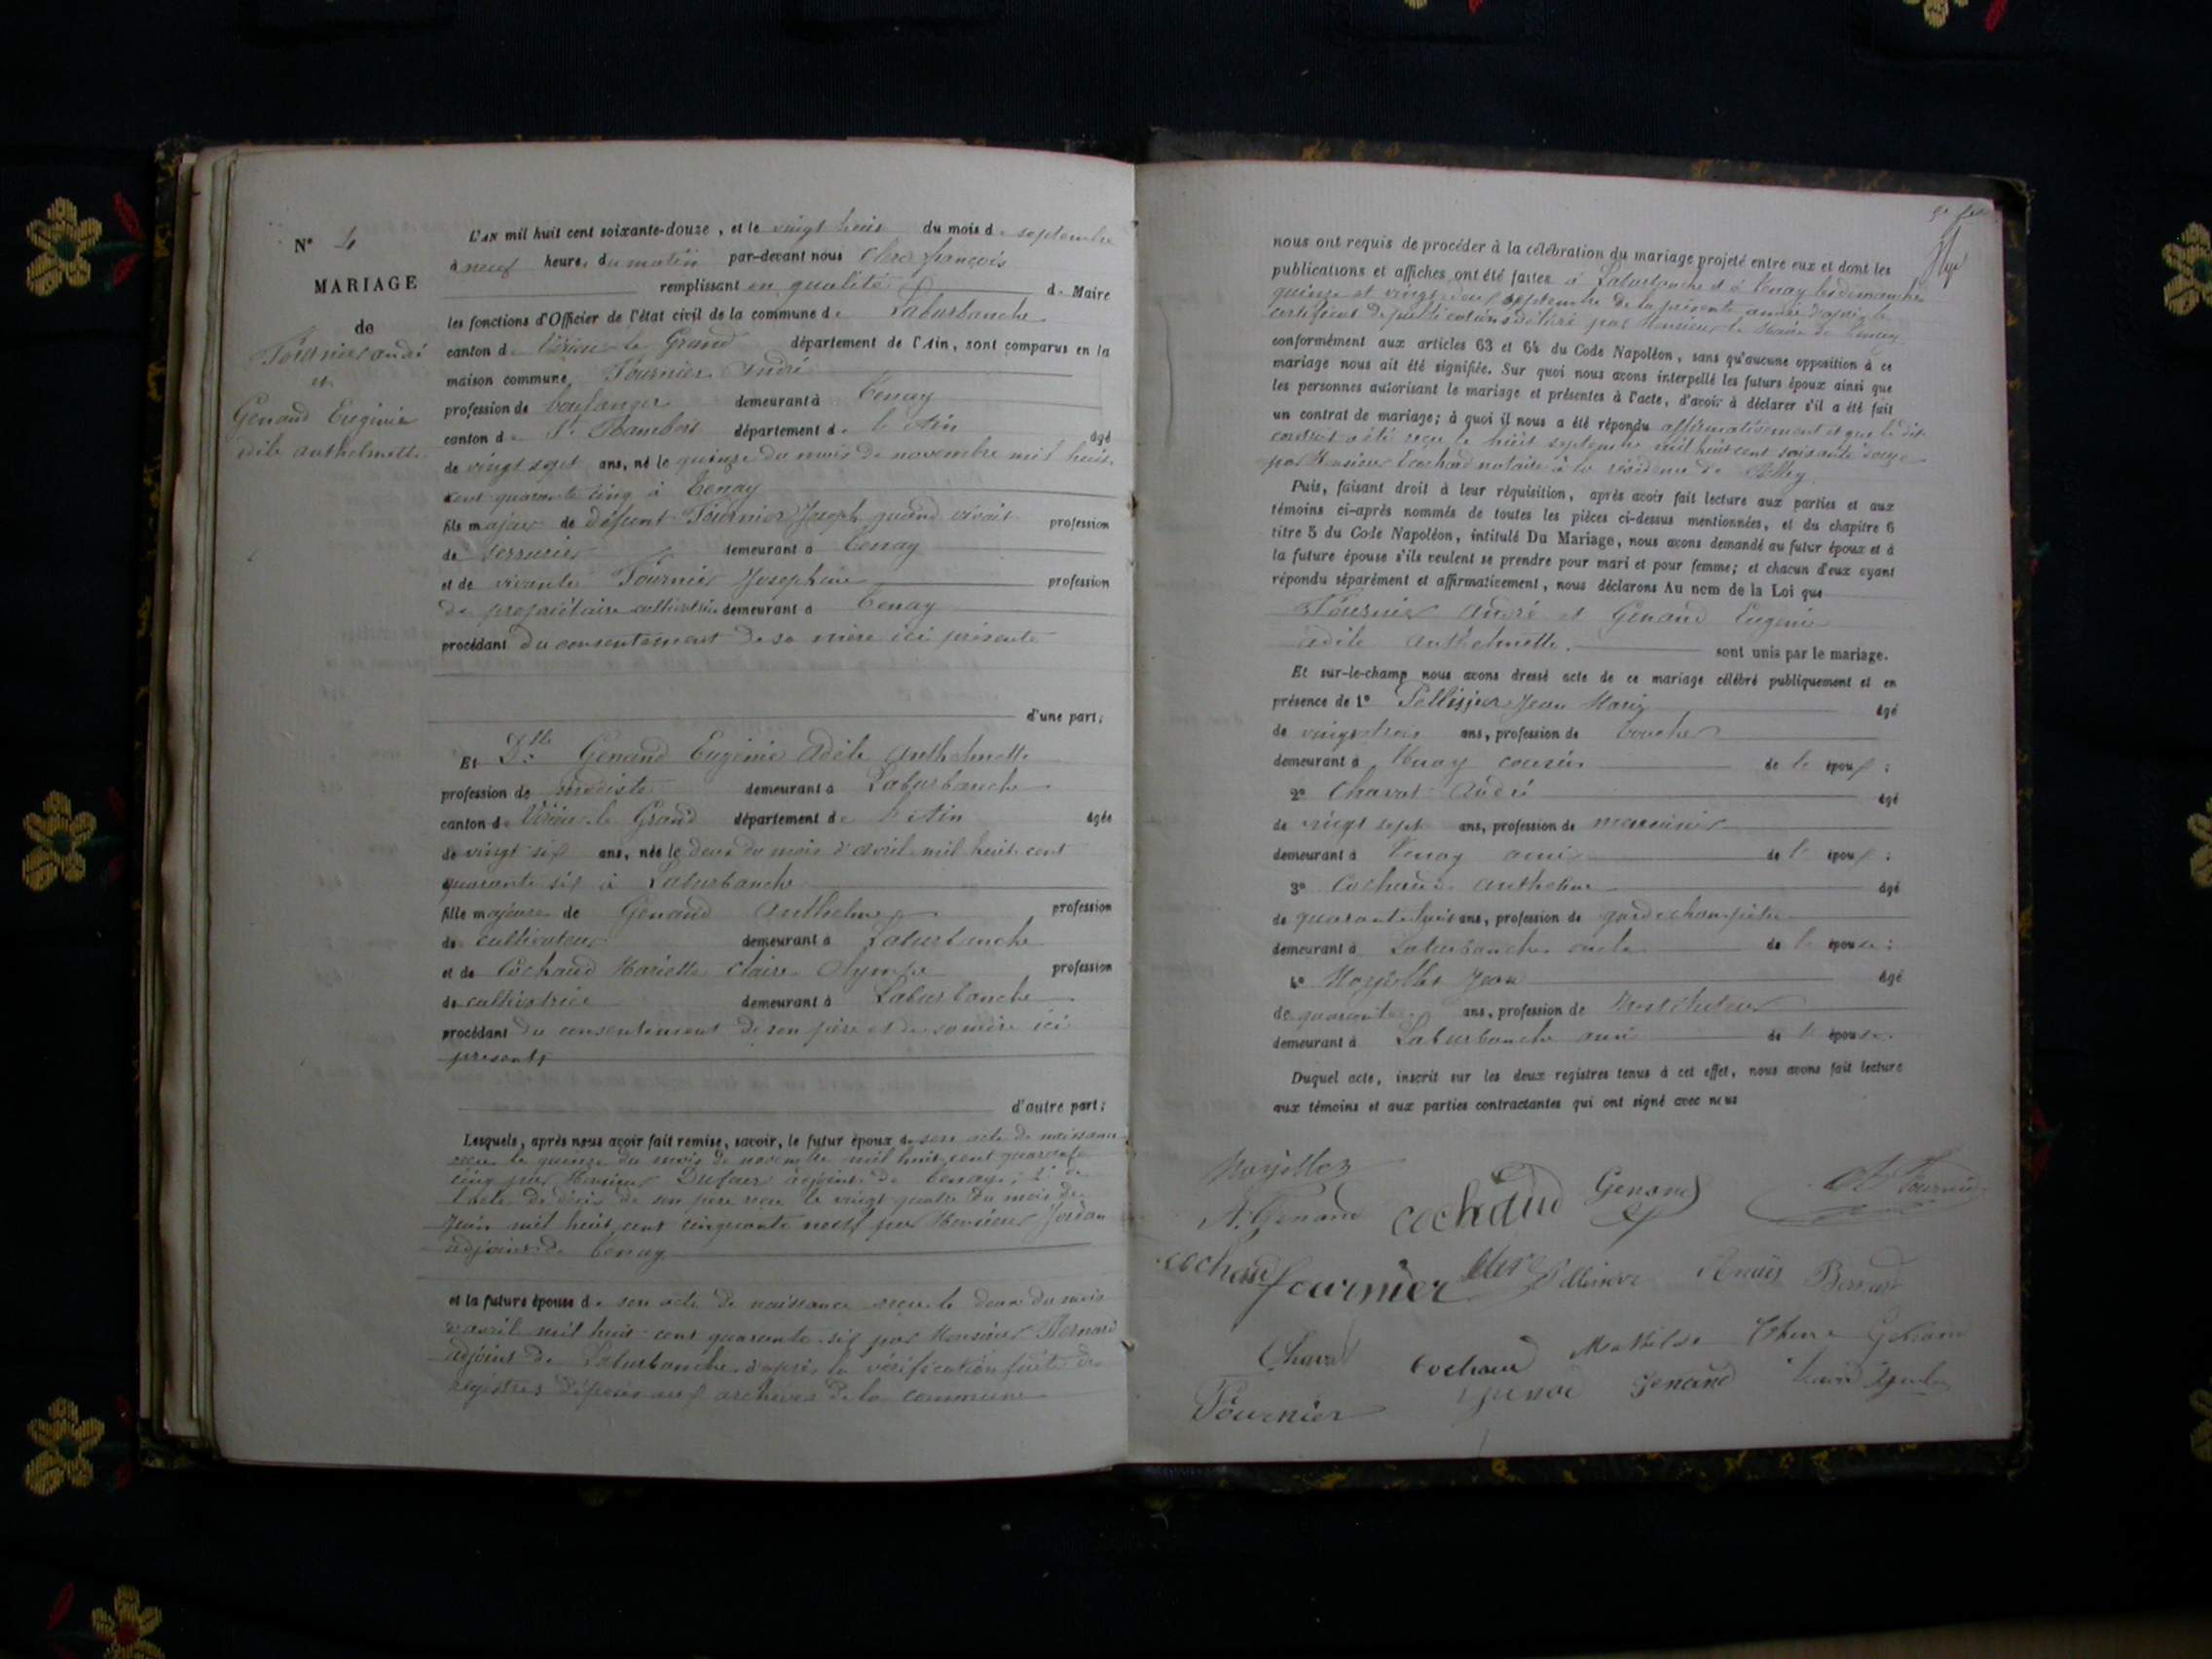 N° 4
MARIAGE
de
Fournier andré
et
Genand Eugénie
adèle anthelmette
L'AN mil huit cent soixante-douze, et le vingt huit du mois de septembre
à neuf heures du matin par-devant nous Clerc françois
remplissant en qualité de Maire
les fonctions d'Officier de l'état civil de la commune de Laburbanche
canton de Virieu le Grand département de l'Ain, sont comparus en la
maison commune, Fournier André
profession de boulanger demeurant à Tenay
canton de St Rambert département de l'Ain âgé
de vingt sept ans, né le quinze du mois de novembre mil huit
cent quarante cinq à Tenay
fils majeur de défunt Fournier Joseph quand vivait profession
de serrurier demeurant à Tenay
et de vivante Fournier Josephine profession
de propriétaire cultivatrice demeurant à Tenay
procédant du consentement de sa mère ici présente
d'une part;
Et Dlle Genand Eugénie Adèle Anthelmette
profession de modiste demeurant à Laburbanche
canton de Virieu le Grand département de l'Ain âgée
de vingt six ans, née le deux du mois d'avril mil huit cent
quarante six à Laburbanche
fille majeure de Genand Anthelme profession
de cultivateur demeurant à Laburbanche
et de Cochaud Mariette Claire Olympe profession
de cultivatrice demeurant à Laburbanche
procédant du consentement de son père et de sa mère ici
présents
d'autre part;
Lesquels, après nous avoir fait remise, savoir, le futur époux de son acte de naissance
reçu le quinze du mois de novembre mil huit cent quarante
cinq par Monsieur Dufour adjoint de Tenay; 2° de
l'acte de décès de son père reçu le vingt quatre du mois de
Juin mil huit cent cinquante neuf par Monsieur Jordan
adjoint de Tenay
et la future épouse de son acte de naissance reçu le deux du mois
d'avril mil huit cent quarante six par Monsieur Bernard
adjoint de Laburbanche d'après la vérification faite des
registres déposés aux archives de la commune
nous ont requis de procéder à la célébration du mariage projeté entre eux et dont les
publications et affiches ont été faites à Laburbanche et à Tenay les dimanches
quinze et vingt deux septembre de la présente année d'après le
certificat de publications délivré par Monsieur le Maire de Tenay
conformément aux articles 63 et 64 du Code Napoléon, sans qu'aucune opposition à ce
mariage nous ait été signifiée. Sur quoi nous avons interpellé les futurs époux ainsi que
les personnes autorisant le mariage et présentes à l'acte, d'avoir à déclarer s'il a été fait
un contrat de mariage; à quoi il nous a été répondu affirmativement et que le dit
contrat a été reçu le huit septembre mil huit cent soixante douze
par Monsieur Ecochard notaire à la résidence de Belley
Puis, faisant droit à leur réquisition, après avoir fait lecture aux parties et aux
témoins ci-après nommés de toutes les pièces ci-dessus mentionnées, et du chapitre 6
titre 5 du Code Napoléon, intitulé Du Mariage, nous avons demandé au futur époux et à
la future épouse s'ils veulent se prendre pour mari et pour femme; et chacun d'eux ayant
répondu séparément et affirmativement, nous déclarons Au nom de la Loi que
Fournier André et Genand Eugénie
adèle anthelmette. sont unis par le mariage.
Et sur-le-champ nous avons dressé acte de ce mariage célébré publiquement et en
présence de 1° Pellissier Jean Marie âgé
de vingt trois ans, profession de boucher
demeurant à Tenay cousin de l'époux;
2° Chavat André âgé
de vingt sept ans, profession de menuisier
demeurant à Tenay ami de l'époux;
3° Cochaud Anthelme âgé
de quarante huit ans, profession de garde champêtre
demeurant à Laburbanche oncle de l'épouse;
4° Moyollet Jean âgé
de quarante ans, profession de
demeurant à Laburbanche ami de l'épouse.
Duquel acte, inscrit sur les deux registres tenus à cet effet, nous avons fait lecture
aux témoins et aux parties contractantes qui ont signé avec nous
A. Genand Cochaud Genand A. Fournier
Cochaud fournier Clerc Pellissier Bernard
Chavat Cochaud Mathilde Genand
Fournier Genand Genand